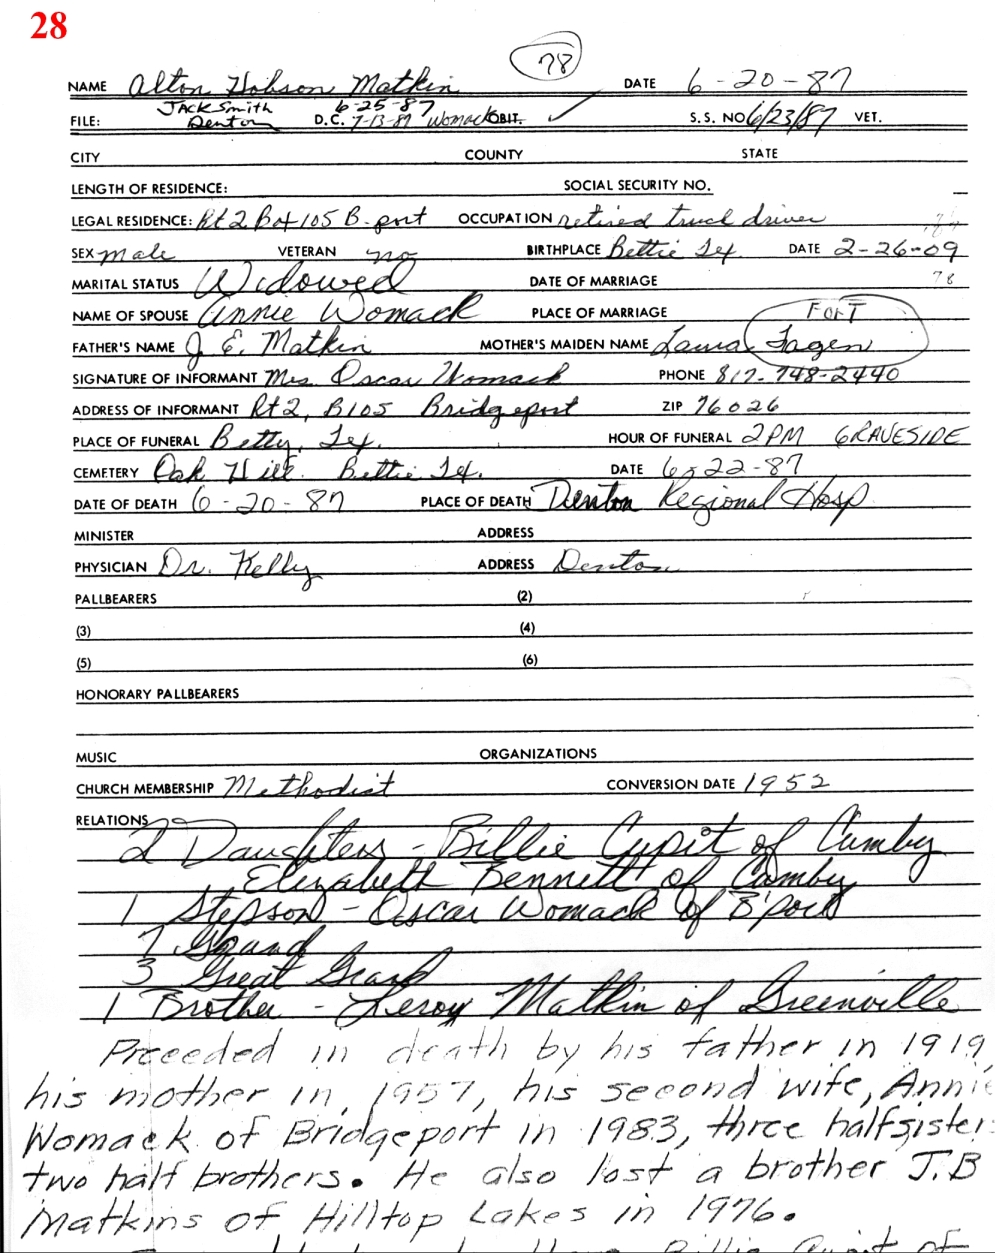 28
78
NAME Alton Hobson Matkin DATE 6-20-87
Jack Smith 6-25-87
FILE: Denton D.C. 7-13-87 Womack OBIT. ✓ S.S. NO 6/23/87 VET.
CITY COUNTY STATE
LENGTH OF RESIDENCE: SOCIAL SECURITY NO.
LEGAL RESIDENCE: Rt 2 Box 105 B-port OCCUPATION retired truck driver
SEX male VETERAN no BIRTHPLACE Bettie Tex. DATE 2-26-09
MARITAL STATUS Widowed DATE OF MARRIAGE 78
NAME OF SPOUSE Annie Womack PLACE OF MARRIAGE FORT
FATHER'S NAME J. E. Matkin MOTHER'S MAIDEN NAME Laura Fagen
SIGNATURE OF INFORMANT Mrs Oscar Womack PHONE 817-748-2440
ADDRESS OF INFORMANT Rt 2, B105 Bridgeport ZIP 76026
PLACE OF FUNERAL Betty, Tex. HOUR OF FUNERAL 2PM GRAVESIDE
CEMETERY Oak Hill Bettie Tex. DATE 6-22-87
DATE OF DEATH 6-20-87 PLACE OF DEATH Denton Regional Hosp
MINISTER ADDRESS
PHYSICIAN Dr. Kelly ADDRESS Denton
PALLBEARERS (2)
(3) (4)
(5) (6)
HONORARY PALLBEARERS
MUSIC ORGANIZATIONS
CHURCH MEMBERSHIP Methodist CONVERSION DATE 1952
RELATIONS
2 Daughters - Billie Cupit of Cumby
Elizabeth Bennett of Cumby
1 Stepson - Oscar Womack of B'port
7 Grand
3 Great Grand
1 Brother - Leroy Matkin of Greenville
Preceded in death by his father in 1919
his mother in 1957, his second wife, Annie
Womack of Bridgeport in 1983, three halfsister
two half brothers. He also lost a brother J.B
Matkins of Hilltop Lakes in 1976.